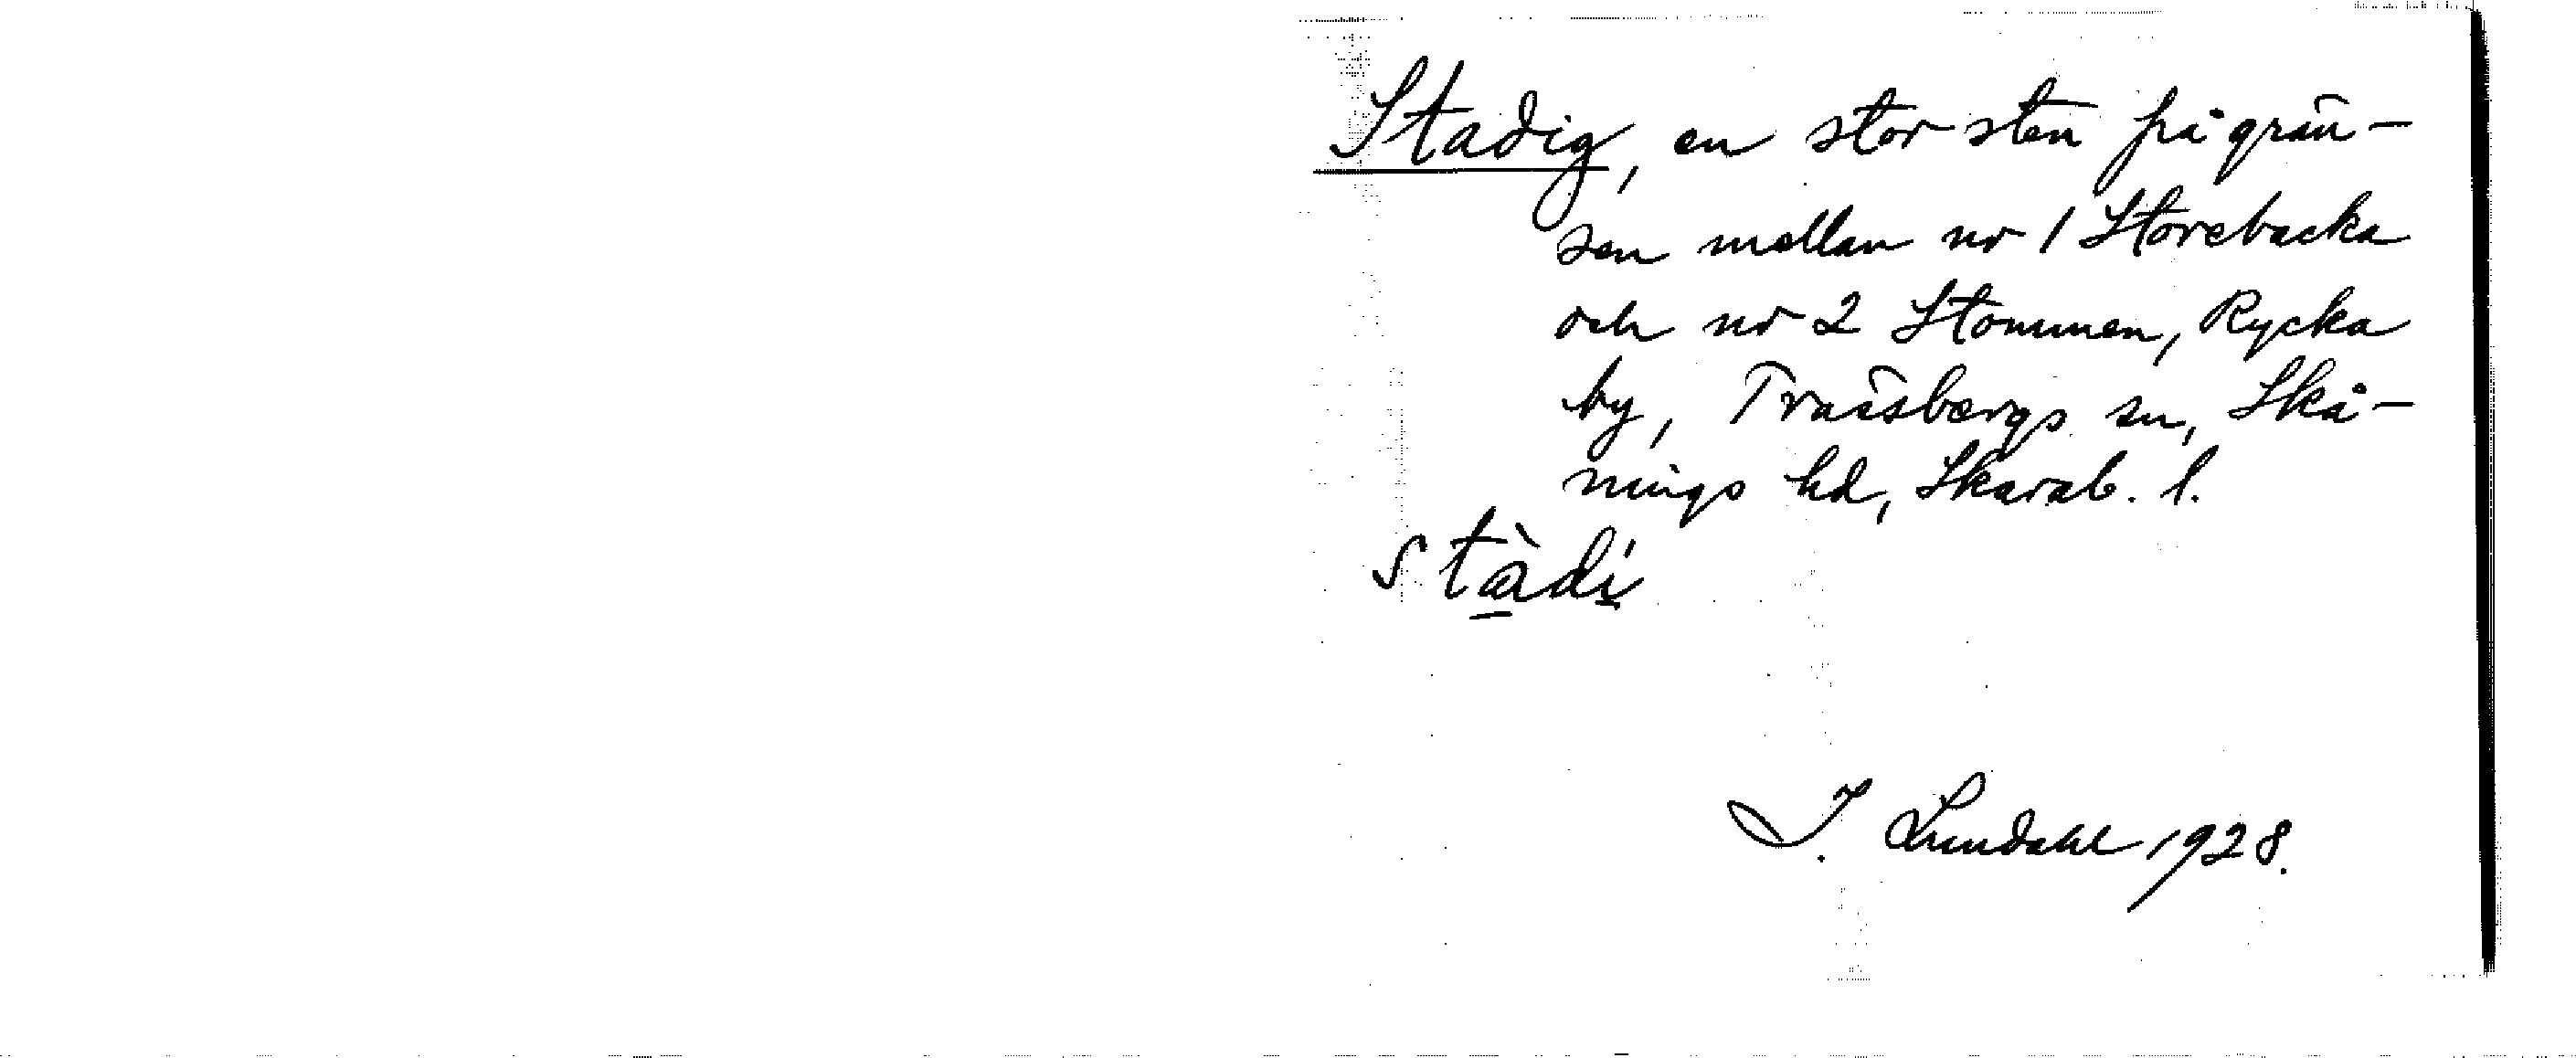 Stadig, en stor sten på grän-
sen mellan nr 1 Storebacka
och nr 2 Stommen, Rycka
by, Trässbergs sn, Skå-
nings hd, Skarab. l.
stàdi
I. Lundahl 1928.